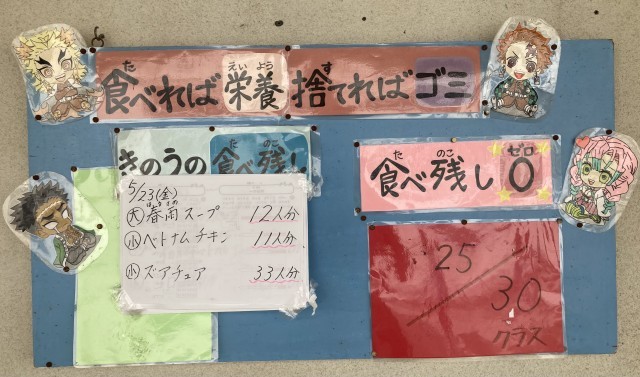 食べれば栄養捨てればゴミ
きのうの食べ残し
5/23(金)
大 春雨スープ 12人分
小 ベトナムチキン 11人分
小 ズアチュア 33人分
食べ残しゼロ0
25/30
クラス